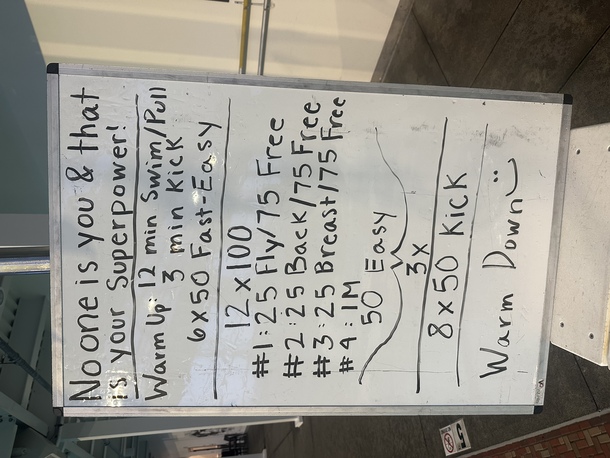 No one is you & that
is your Superpower!
Warm Up: 12 min Swim/Pull
3 min Kick
6x50 Fast-Easy
12x100
#1: 25 Fly/75 Free
#2: 25 Back/75 Free
#3: 25 Breast/75 Free
#4: IM
50 Easy
3x
8x50 Kick
Warm Down